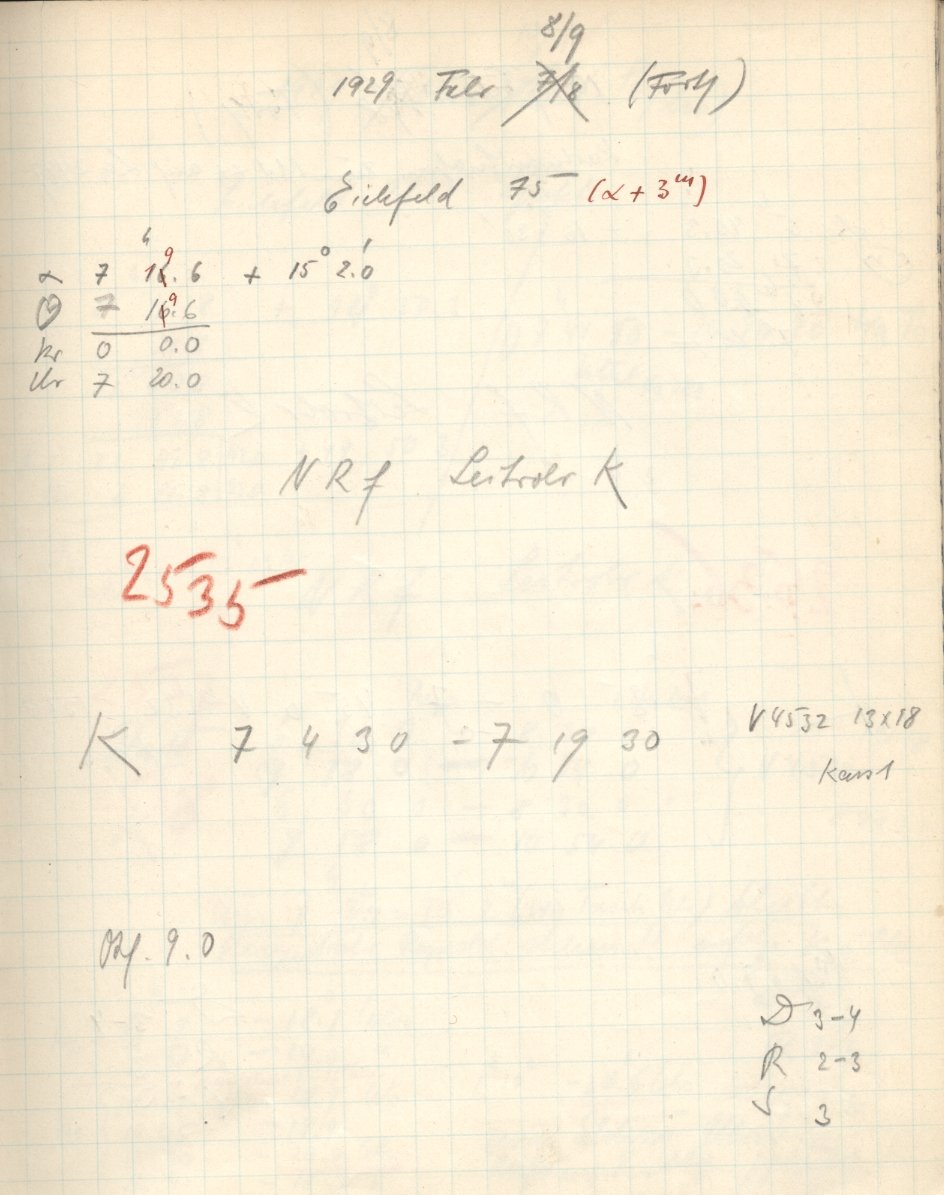 8/9
1929 Febr 7/8 (Forts)
Eichfeld 75 (α + 3ᵐ)
h
α 7 19.6 + 15° 2.'0
7 19.6
kr 0 0.0
Uhr 7 20.0
NRf Leitrohr K
2535
K 7 4 30 - 7 19 30 V4532 13x18
Kass 1
Okf. 9.0
D 3-4
R 2-3
S 3